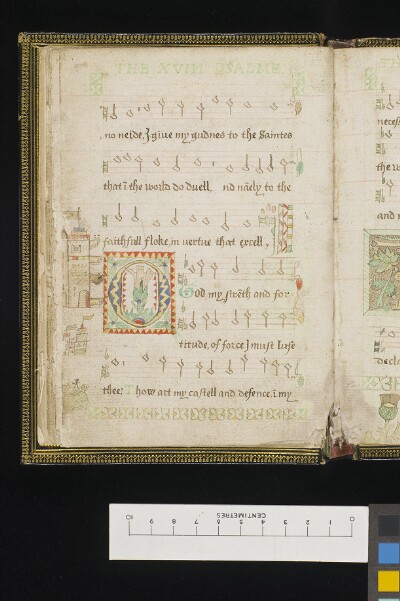 THE XVIII PSALME
no neide, I giue my gudnes to the Saintes
that ī the world do duell, nd nāely to the
faithfull floke, in vertue that excell,
O
God my strēth and for
titude, of force I must luse
thee: Thow art my castell and defence. ī my
necess
the w
and n
decla
CENTIMETRES
0 1 2 3 4 5 6 7 8 9 10